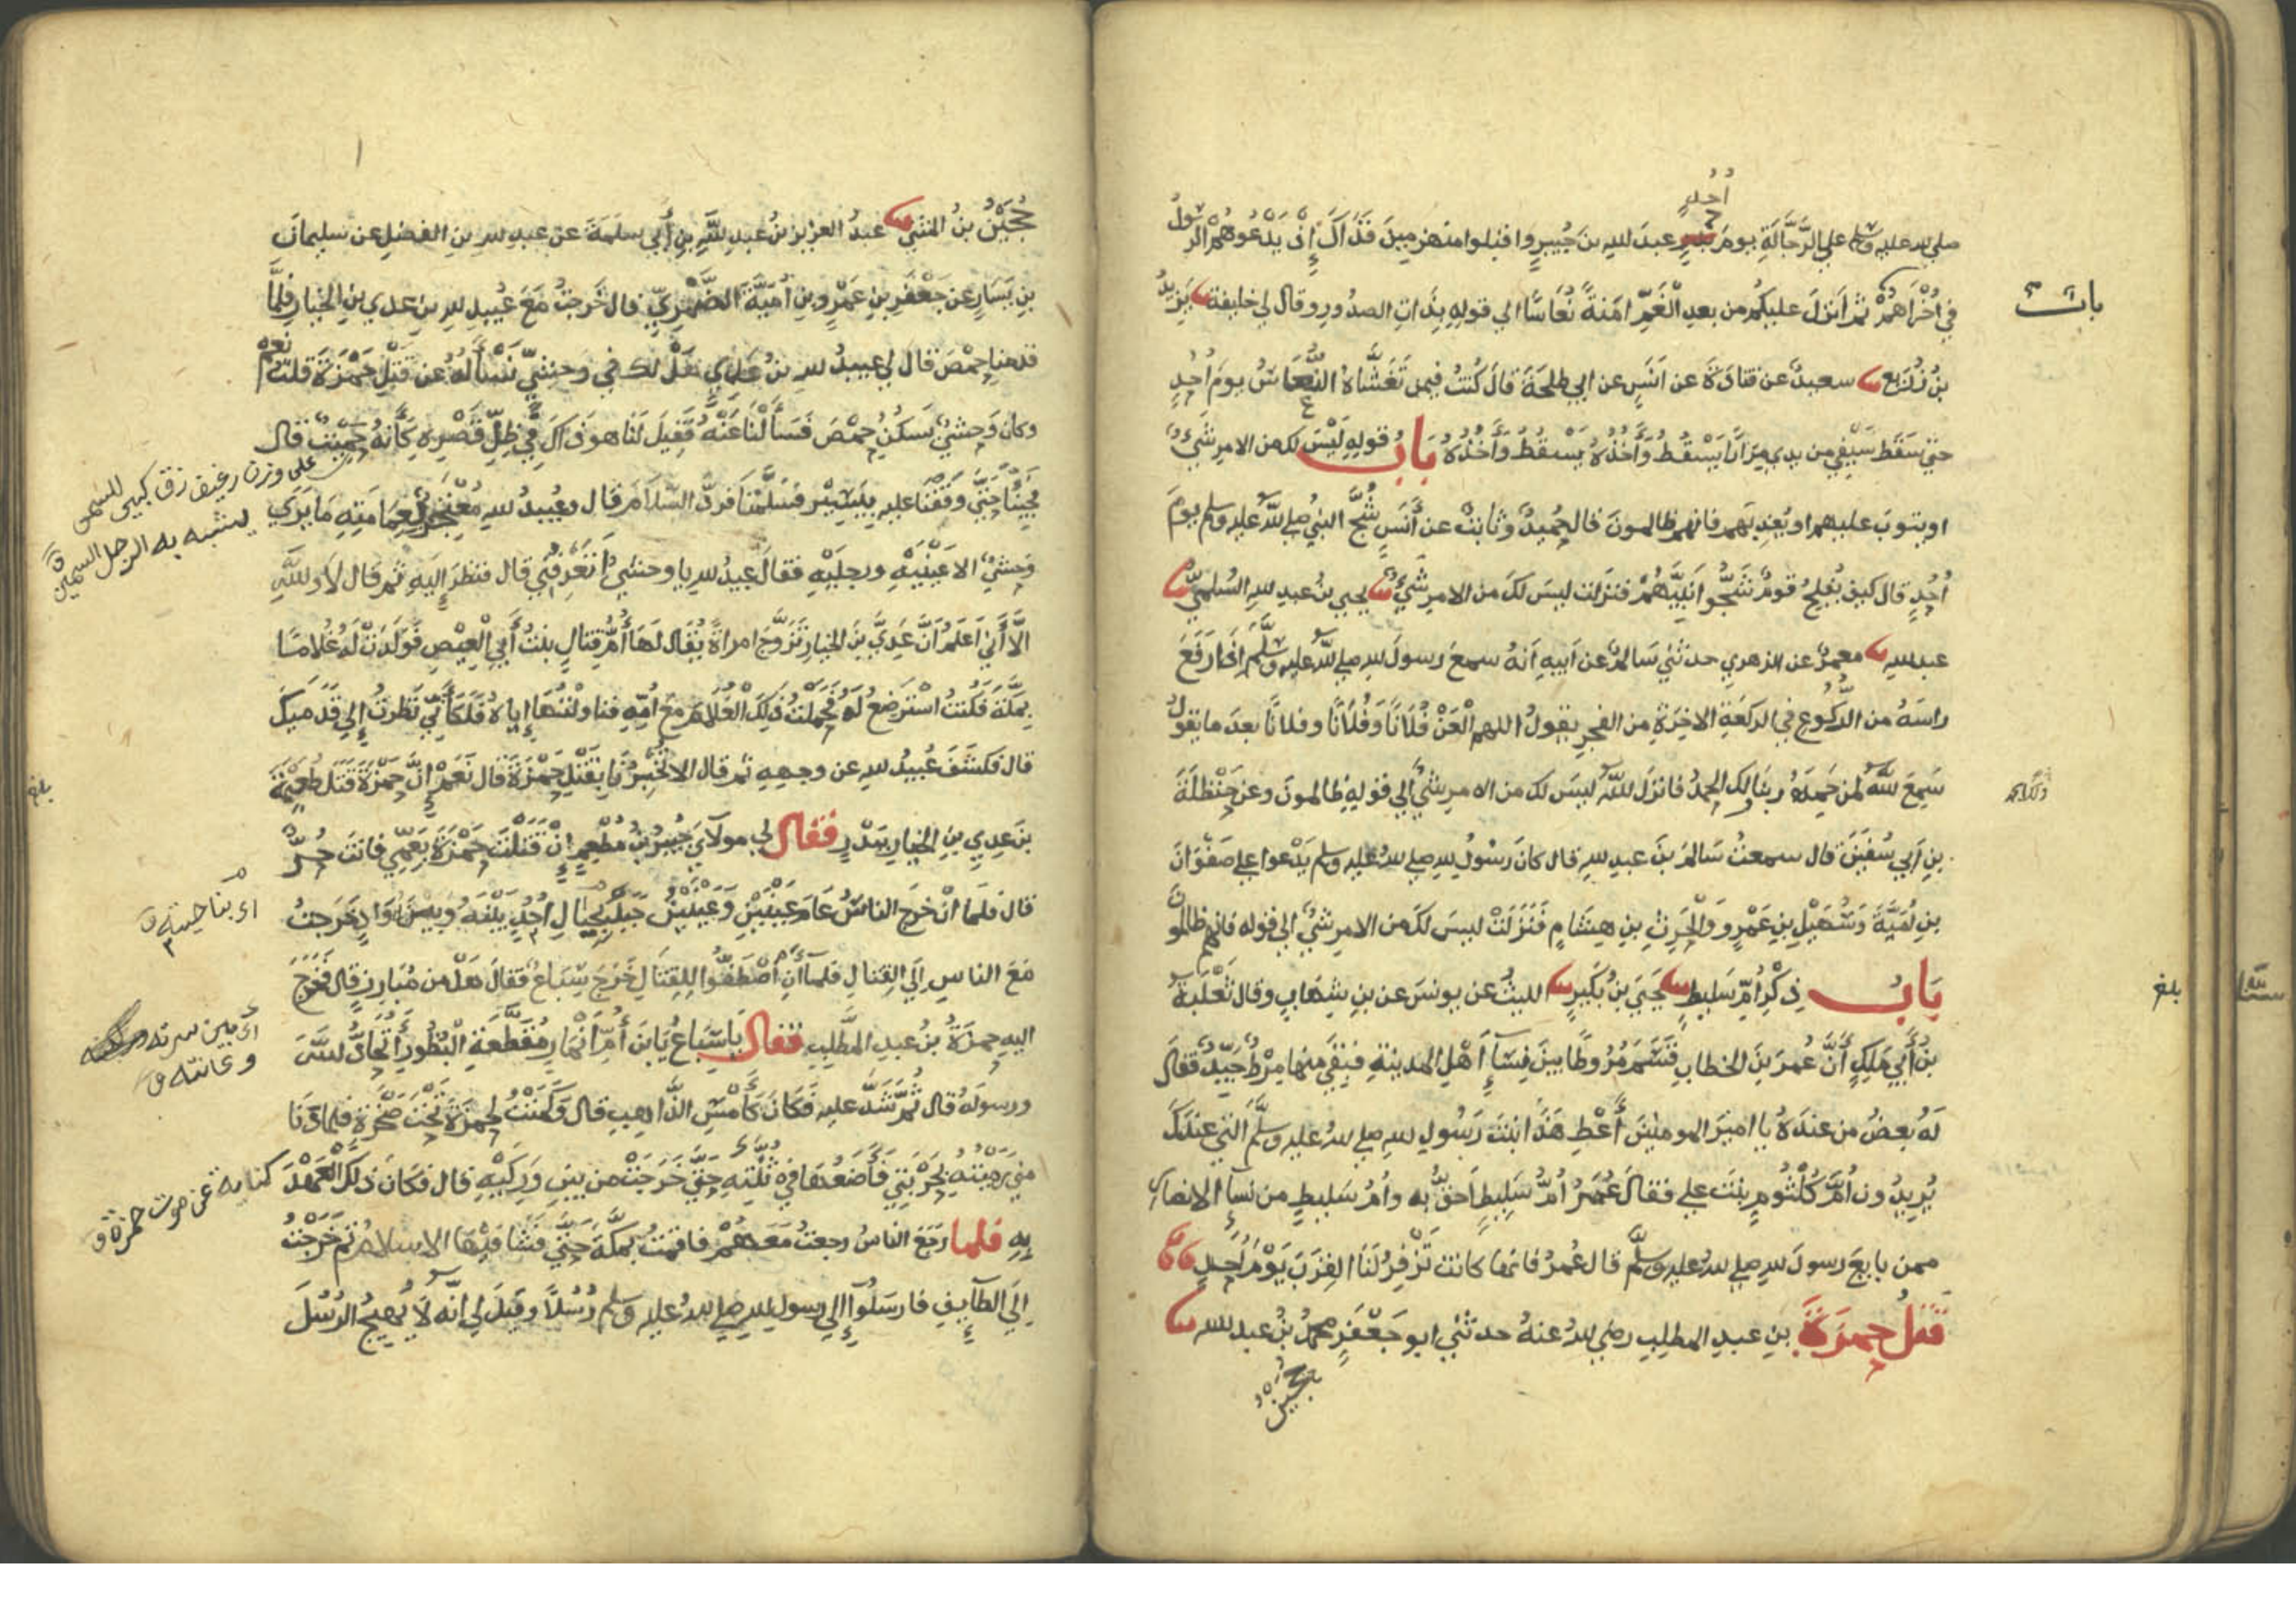 صلى الله عليه وسلم على الرَّجَّالَةِ يومَ أُحُدٍ عبدَ اللهِ بنَ جُبيرٍ واقبلوا منهزمينَ فَذَاكَ إِذْ يَدْعُوهُمْ الرسولُ
في أُخْرَاهُمْ ثم انزلَ عليكم من بعدِ الْغَمِّ امَنةً نُعَاسًا الي قولِهِ بِذَاتِ الصدُورِ وقال لي خليفة يَزِيدُ
بنُ زُرَيْعٍ سعيدٌ عن قتادَةَ عن انَسٍ عن ابي طلحَةَ قالَ كُنتُ فيمن تَغَشَّاهُ النُّعَاسُ يومَ أُحُدٍ
حتي سَقَطَ سَيْفِي من يدي مِرَارًا يَسْقُطُ وَأَخُذُهُ يَسْقُطُ وَأَخُذُهُ بَابُ قولِهِ لَيْسَ لكَ من الامرِ شَيْءٌ
او يتوبَ عليهم او يُعذِبَهم فانهم ظالمونَ قال حُمَيدٌ وثابتٌ عن أَنَسٍ شُجَّ النبيُ صلى اللهُ عليه وسلم يومَ
أُحُدٍ قال كيفَ يُفلِحُ قومٌ شَجُّوا نَبِيَّهُمْ فنزَلت ليسَ لكَ من الامرِ شَيْءٌ يحيي بنُ عبدِ اللهِ السُّلميُّ
عبد الله معمرٌ عن الزهري حدثني سَالمٌ عن ابيهِ انَّهُ سمعَ رسولَ اللهِ صلى اللهُ عليه وسلَّمَ إِذَا رَفَعَ
راسَهُ من الرُّكُوعِ في الركعةِ الاخِرَةِ من الفجرِ يقولُ اللهم الْعَنْ فُلَانًا وَفُلَانًا وفلانًا بعدَ ما يقولُ
سَمِعَ اللهُ لمن حَمِدَهُ ربنَا لك الحمدُ فانزلَ اللهُ ليسَ لك من الامرِ شَيْءٌ الي قولِهِ ظالمونَ وعن حَنْظَلَةَ
بنِ أبي سُفْيَنَ قال سمعتُ سَالمَ بنَ عبد اللهِ قال كانَ رسُولُ اللهِ صلى اللهُ عليه وسلم يَدْعوا على صَفْوَانَ
بنِ أُمَيَّةَ وَسُهَيْلِ بنِ عَمْرٍو وَالْحَرِثِ بنِ هِشَامٍ فَنَزَلَتْ ليسَ لكَ من الامرِ شَيْءٌ الي قوله فانهم ظالمون
بَابُ ذِكْرِ أُمِّ سَلِيطٍ يَحيَي بنُ بُكَيرٍ الليثُ عن يونسَ عن بنِ شِهَابٍ وقال ثَعْلَبَةُ
بنُ أَبي مَلِكٍ أَنَّ عُمرَ بنَ الخطابِ قَسَّمَ مُرُوطًا بينَ نِسَاءِ أَهْلِ المدينةِ فبَقِيَ منها مِرْطٌ جَيِّدٌ فقالَ
لَهُ بعضُ من عندَهُ يا اميرَ المومنينَ أَعْطِ هَذَا ابْنَتَ رَسُولِ اللهِ صلى اللهُ عليه وسلَّمَ التي عندَكَ
يُرِيدُونَ أُمَّ كُلْثُومٍ بنتَ علي فقالَ عُمَرُ أُمُّ سَلِيطٍ أَحَقُّ به وأمُ سَليطٍ من نساءِ الانصارِ
ممن بايعَ رسولَ اللهِ صلى اللهُ عليه وسلَّمَ قالَ عُمرُ فانها كانت تَزْفِرُ لَنَا القِرَبَ يَوْمَ أُحُدٍ
قَتلُ حمزَةَ بنِ عبدِ المطلبِ رضي اللهُ عنهُ حدثني ابو جَعْفَرٍ محمدُ بنُ عبد الله
حُجَيْنُ
باب
بلغ
حُجَيْنُ بنُ المثني عبدُ العزيزِ بنُ عبدِ اللهِ بنِ أبي سلمَةَ عن عبدِ اللهِ بنِ الفضلِ عن سليمانَ
بنِ يَسَارٍ عن جَعْفَرِ بنِ عَمْرِو بنِ أُمَيَّةَ الضَّمْرِيِّ قال خَرجتُ مَعَ عُبيدِ اللهِ بنِ عدي بنِ الخيارِ فلمَّا
قدمنا حِمْصَ قالَ لي عبيدُ اللهِ بنُ عَدِي هَلْ لك في وحشيٍّ نَسْأَلُهُ عن قَتْلِ حَمْزَةَ قلتُ نعم
وكان وَحشيٌ يَسكُنُ حِمْصَ فَسَأَلْنَا عَنْهُ فَقِيلَ لَنَا هو ذَاكَ في ظِلِّ قَصْرِهِ كَأَنَّهُ حَمِيتٌ قال
فجينَا حَتَّى وَقَفْنَا عليهِ بيَسِيْرٍ فسَلَّمْنَا فردَّ السَّلاَمَ قال وعُبيدُ اللهِ مُعْتَجِرٌ بعِمَامَتِهِ مَا يَرَي
وَحشيٌ الا عَيْنَيْهِ ورجلَيْهِ فقالَ عبيدُ اللهِ يا وحشيُ أَتَعْرِفُنِي قال فنظرَ إليهِ ثم قال لَا وَاللهِ
إلَّا أَني اَعلمُ أَنَّ عَدِيَّ بنَ الخيارِ تَزَوَّجَ امراةً يُقَالُ لَهَا أُمُّ قِتالٍ بنتُ أَبي الْعِيْصِ فَوَلَدَتْ لَهُ غُلاَمًا
بمَكَّةَ فكُنتُ اسْتَرضِعُ لَهُ فحَمَلْتُ ذَلِكَ الْغُلَامَ مَعَ أُمِّهِ فناولْتُهَا إياهُ فَلَكَأَنِّي نَظَرتُ إلي قَدَمَيكَ
قال فكشَفَ عُبيدُ اللهِ عن وجههِ ثم قال الا تُخْبِرُنَا بقَتْلِ حَمْزَةَ قال نَعَمْ إنَّ حَمْزَةَ قَتَلَ طُعَيْمَةَ
بنَ عَدِيِ بنِ الخيارِ ببَدْرٍ فقال لي مولايَ جُبيرُ بنُ مُطْعِمٍ إنْ قَتَلْتَ حَمْزَةَ بعَمِّي فانتَ حُرٌّ
قال فلما أنْ خرَجَ الناسُ عَامَ عَيْنَيْنِ وَعَيْنَيْنُ جَبلٌ بحيَالِ أُحُدٍ بَيْنَهُ وبينَهُ وَادٍ خَرجتُ
مَعَ الناسِ إلَي القِتَالِ فلما أَنِ اصْطَفُّوا لِلقِتَالِ خَرَجَ سِبَاعٌ فقالَ هَلْ من مُبَارِزٍ قال فخرجَ
اليهِ حمزَةُ بنُ عبدِ المُطَّلِبِ فقال يَا سِبَاعُ يَا بنَ أُمِّ أَنْمَارٍ مُقَطِّعَةِ الْبُظُورِ أَتُحَادُّ اللهَ
ورسولَهُ قال ثُمَّ شَدَّ عليهِ فَكَانَ كَأَمْسِ الذَّاهِبِ قال وَكَمَنْتُ لحمزَةَ تَحْتَ صَخْرَةٍ فلما دَنَا
مِني رَمَيْتُهُ بحَرْبَتِي فَأَضَعُهَا في ثُنَّتِهِ حَتَّى خَرَجَتْ من بينِ وَرِكَيْهِ قال فكَانَ ذَلكَ الْعَهْدَ
بِهِ فلما رَجَعَ الناسُ رجعتُ مَعَهُمْ فاقمتُ بمكَّةَ حَتَّى فَشَا فيْهَا الاسلامُ ثم خَرَجْتُ
إلَي الطَّايِفِ فارسَلُوا إلي رسولِ اللهِ صلى اللهُ عليه وسلم رُسُلًا وقيلَ لي انَّه لَا يُهيجُ الرُسُلَ
على وزن رغيف زق كبير للسمن
يشبه به الرجل السمين
بلغ
اي بناحيته
اي بين سرته
وعانته
كناية عن موت حمزة